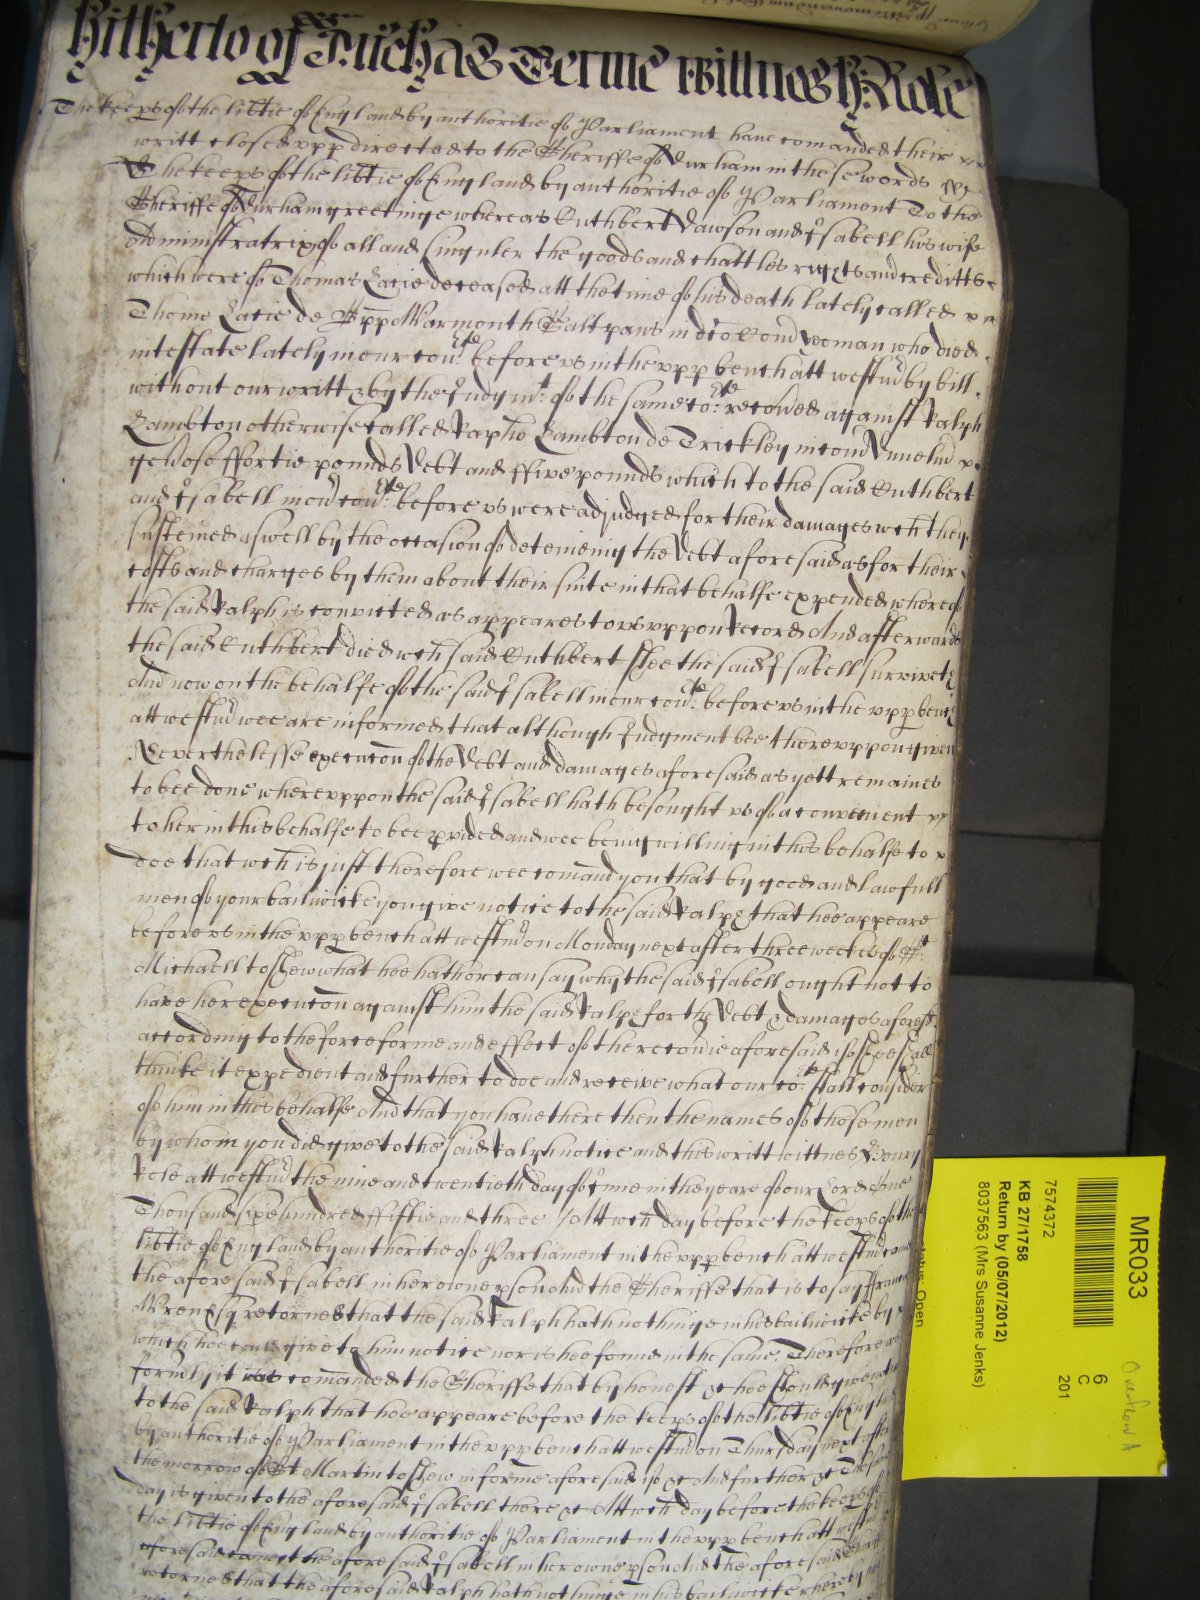 hitherto of Michas Terme wittnes H: Role
The keeps of the libtie of England by authoritie of Parliament haue comanded their
writt closed vpp directed to the Sheriffe of Durham in these words
The keeps of the libtie of England by authoritie of Parliament To the
Sheriffe of Durham greetinge whereas Cuthbert Dawson and Isabell his wife
administratrix of all and singuler the goods and chattles rights and creditts
which were of Thomas Lacie deceased att the time of his death lately called
Thome Lacie de Sale panns in Com woman who died
intestate lately in our cort before vs in the vpp bench att Westm by bill
without our writt & by the Judgmt of the same cort recoued against Ralph
Lambton otherwise called Lambton de in com Dunelm
of ffortie pounds Debt and ffive pounds which to the said Cuthbert
and Isabell in our cort before vs were adjudged for their damages wch they
susteined aswell by the occasion of deteineing the Debt aforesaid as for their
costs and charges by them about their suite in that behalfe expended whereof
the said Ralph is convicted as appeares to vs vppon Record And afterwards
the said Cuthbert died wch said Cuthbert shee the said Isabell surviveth
And now on the behalfe of the said Isabell in our cort before vs in the vpp bench
att Westm wee are informed that although Judgment bee therevppon given
Neverthelesse execucon of the Debt and damages aforesaid as yett remaines
to bee done wherevppon the said Isabell hath besought vs of a convenient
to her in this behalfe to bee pvided and wee being willing in this behalfe to
doe that wch is just therefore wee comand you that by good and lawfull
men of your bailiwicke you give notice to the said Ralph that hee appeare
before vs in the vpp bench att Westm on Monday next after three weekes of St
Michaell to shew what hee hath or can say why the said Isabell ought not to
have her execucon against him the said Ralph for the Debt & damages aforesd
according to the force forme and effect of the recouie aforesaid if hee shall
thinke it expedient and further to doe and receive what our cort shall consider
of him in this behalfe And that you haue there then the names of those men
by whom you did give to the said Ralph notice and this writt wittnes Henry
Role att Westm the nine and twentieth day of June in the yeare of our Lord One
Thousand sixe hundred ffiftie and three / Att wch day before the keeps of the
libtie of England by authoritie of Parliament in the vpp bench att Westm came
the aforesaid Isabell in her owne pson And the Sheriffe that is to say
Wren Esq retorned that the said Ralph hath nothinge in his bailiwicke by
which hee could give to him notice nor is hee found in the same. Therefore as
formly it is comanded the Sheriffe that by honest &c hee should give notice
to the said Ralph that hee appeare before the keeps of the libtie of England
by authoritie of Parliament in the vpp bench att Westm on Thursday next after
the morrow of St Martin to shew in forme aforesaid if &c And further &c The same
day is given to the aforesaid Isabell there &c Att wch day before the keeps of
the libtie of England by authoritie of Parliament in the vpp bench att Westm
aforesaid comes the aforesaid Isabell in her owne pson And the aforesaid Sheriffe
retorned that the aforesaid Ralph hath nothinge in his bailiwicke whereby
MR033
6
C
201
7574372
KB 27/1758
Return by (05/07/2012)
8037563 (Mrs Susanne Jenks)
Status: Open
Overflow A